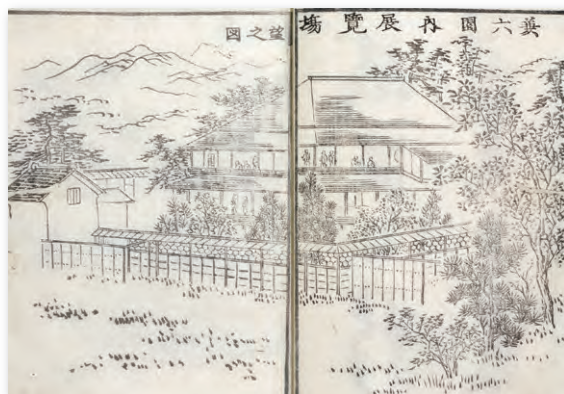 兼六園内展覽塲望之図